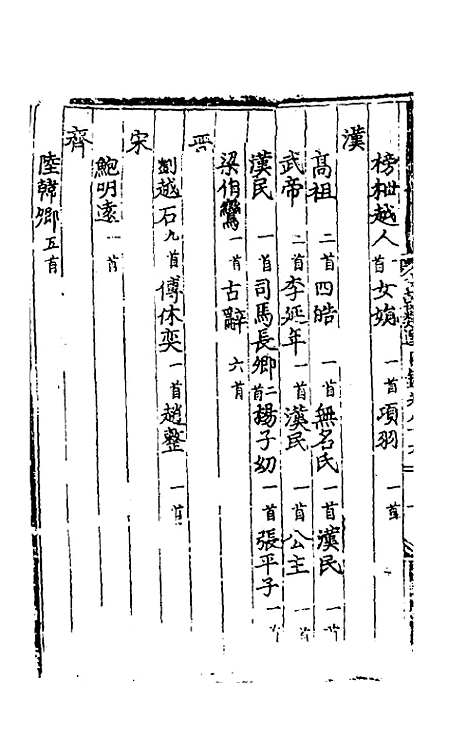 榜枻越人 首 女娟 一首 項羽 一首
漢
高祖 二首 四皓 一首 無名氏 一首 漢民 一首
武帝 二首 李延年 一首 漢民 一首 公主 一首
漢民 一首 司馬長卿 二首 楊子幼 一首 張平子 一首
梁伯鸞 一首 古辭 六首
晋
劉越石 九首 傅休奕 一首 趙整 一首
宋
鮑明遠 一首
齊
陸韓卿 五首